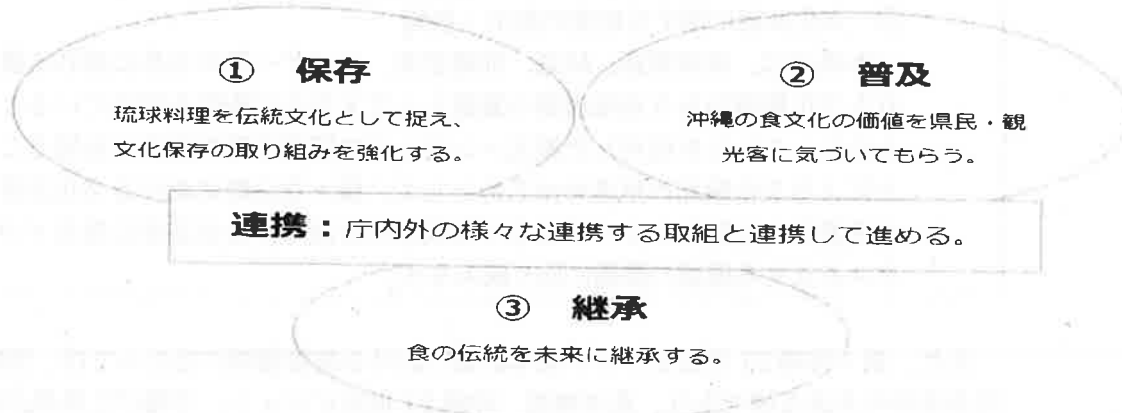 ① 保存
琉球料理を伝統文化として捉え、
文化保存の取り組みを強化する。
② 普及
沖縄の食文化の価値を県民・観
光客に気づいてもらう。
連携：庁内外の様々な連携する取組と連携して進める。
③ 継承
食の伝統を未来に継承する。